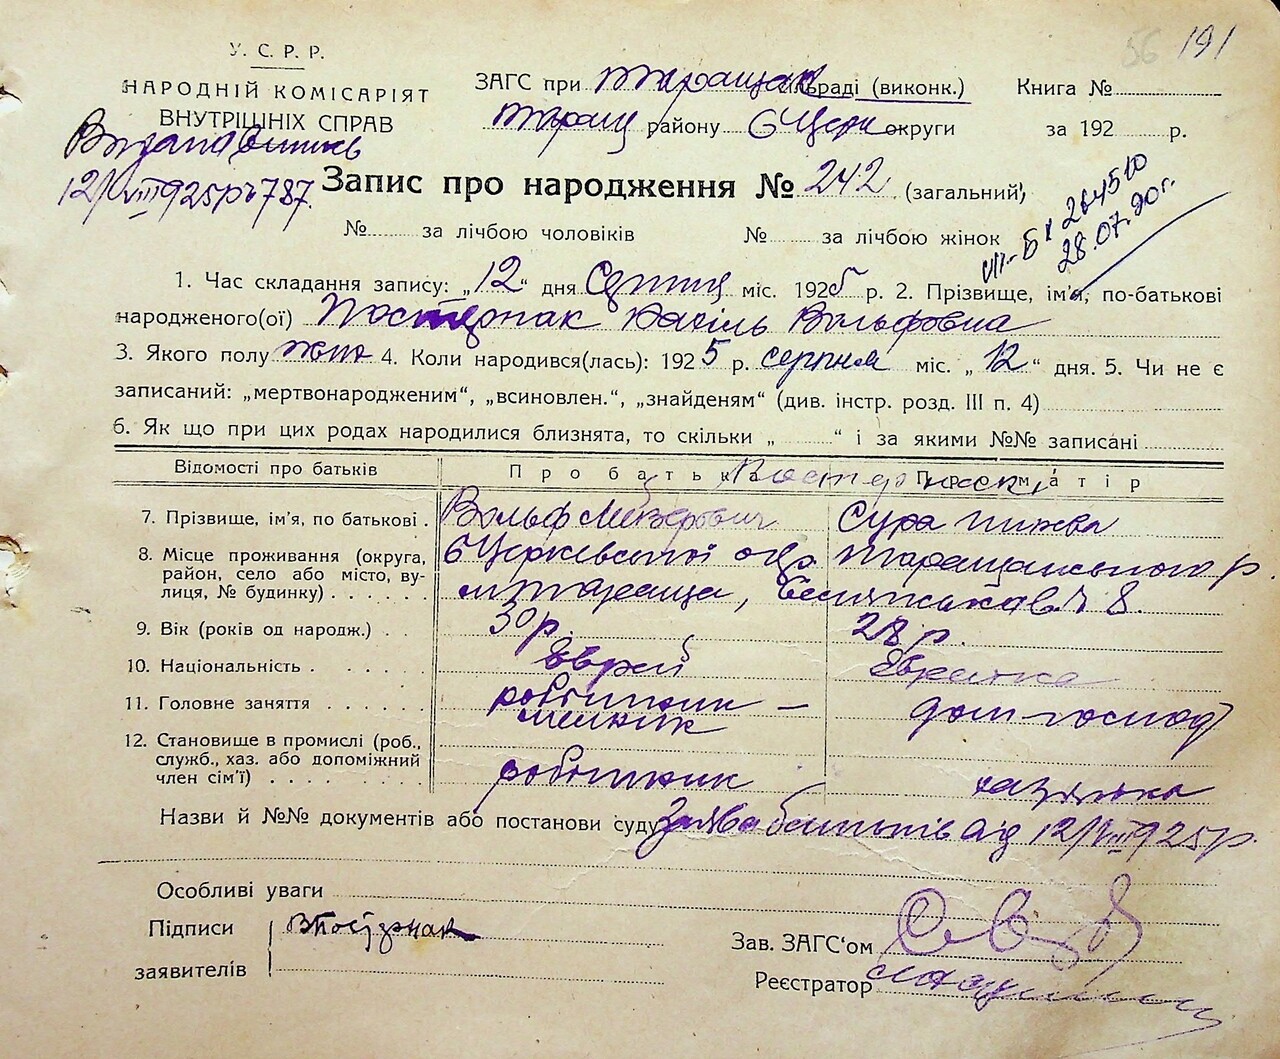 У. С. Р. Р.
НАРОДНІЙ КОМІСАРІЯТ
ВНУТРІШНІХ СПРАВ
12/VIII 925 р № 787.
56 191
ЗАГС при Таращан сільраді (виконк.) Книга №
Таращ району БЦерк округи за 192 р.
Запис про народження № 242 (загальний)
VII-БК 264510
28.07.90г.
№ за лічбою чоловіків № за лічбою жінок
1. Час складання запису: „12“ дня Серпня міс. 1925 р. 2. Прізвище, ім'я, по-батькові
народженого(ої) Постернак Вольфовна
3. Якого полу жін 4. Коли народився(лась): 1925 р. серпня міс. „12“ дня. 5. Чи не є
записаний: „мертвонародженим“, „всиновлен.“, „знайденям“ (див. інстр. розд. III п. 4)
6. Як що при цих родах народилися близнята, то скільки „ “ і за якими №№ записані
Відомості про батьків Про батька Про матір
Постернаки
7. Прізвище, ім'я, по батькові . Вольф Лейзерович Сура
8. Місце проживання (округа, БЦерківської окр. Таращанського р.
район, село або місто, вулиця, № будинку) . . . . . м Тараща, № 8.
9. Вік (років од народж.) . . 30 р. 28 р.
10. Національність . . . . . Єврей Єврейка
11. Головне заняття . . . . . робітник – дом-господ
12. Становище в промислі (роб.,
служб., хаз. або допоміжний
член сім'ї) . . . . . . . робітник хазяйка
Назви й №№ документів або постанови суду Заява батьків від 12/VIII 925 р.
Особливі уваги
Підписи ВПостэрнак
заявителів
Зав. ЗАГС'ом
Реєстратор